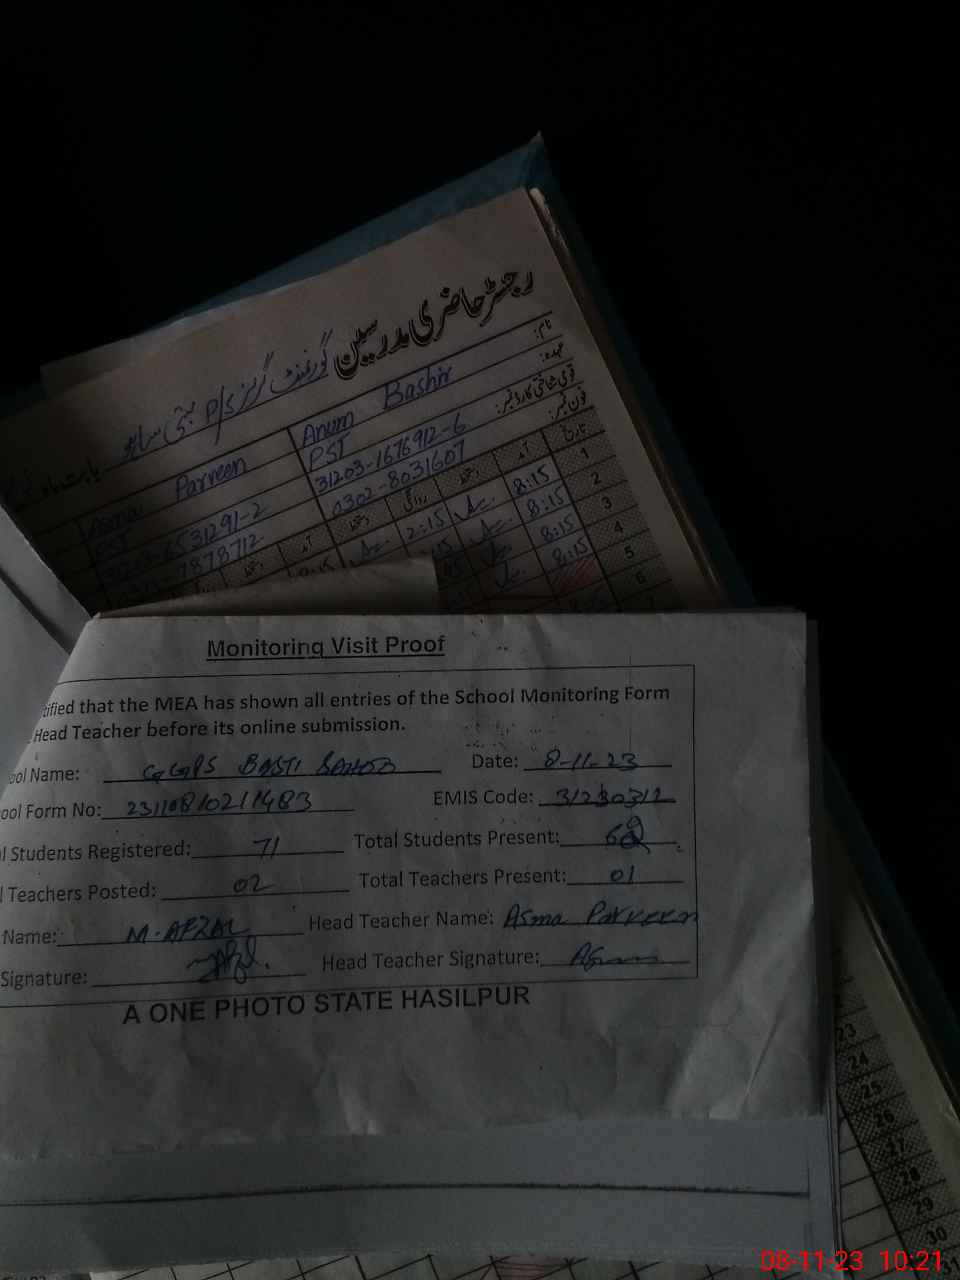 رجسٹر حاضری مدرسین گورنمنٹ گرلز P/S بستی
نام:
Anum Bashir
Asma Parveen
عہدہ:
PST
PST
قومی شناختی کارڈ نمبر:
31203-1676912-6
6531291-2
فون نمبر:
0302-8031607
7878712
تاریخ
آمد
دستخط
روانگی
دستخط
آمد
1 8:15 2:15
2 8:15
3 8:15
4 8:15
5
6
7
Monitoring Visit Proof
tified that the MEA has shown all entries of the School Monitoring Form
Head Teacher before its online submission.
ool Name: GGPS BASTI Date: 8-11-23
ool Form No: 23110810211483 EMIS Code: 31230312
l Students Registered: 71 Total Students Present:
l Teachers Posted: 02 Total Teachers Present: 01
Name: M. AFZAL Head Teacher Name: Asma Parveen
Signature: Head Teacher Signature:
A ONE PHOTO STATE HASILPUR
23
24
25
26
27
28
29
30
08-11-23 10:21